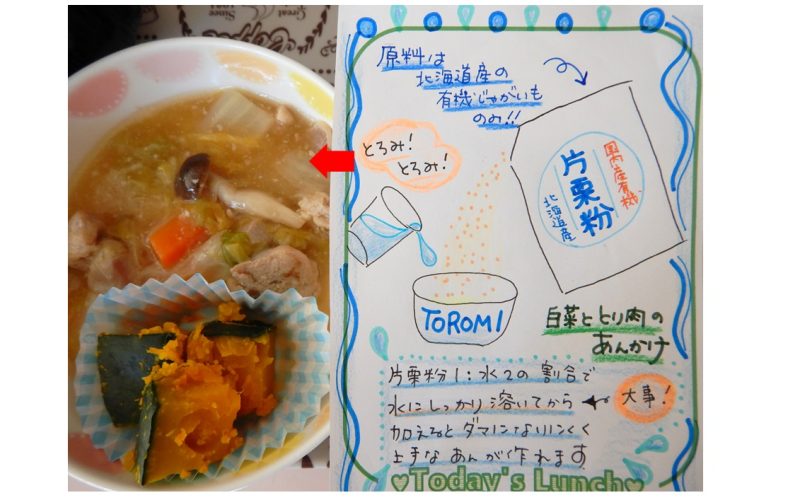 Since
Great
原料は
北海道産の
有機じゃがいも
のみ!!
とろみ!
とろみ!
国内産有機
片栗粉
北海道産
TOROMI
白菜ととり肉の
あんかけ
片栗粉1:水2の割合で
水にしっかり溶いてから
大事!
加えるとダマになりにくく
上手なあんが作れます
♥Today's Lunch♥